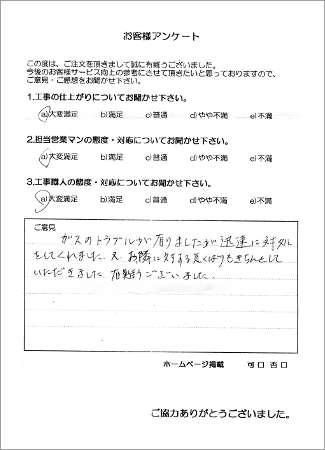 お客様アンケート
この度は、ご注文を頂きまして誠に有難うございました。
今後のお客様サービス向上の参考にさせて頂きたいと思っておりますので、
ご意見・ご感想をお聞かせ下さい。
1.工事の仕上がりについてお聞かせ下さい。
a)大変満足 b)満足 c)普通 d)やや不満 e)不満
2.担当営業マンの態度・対応についてお聞かせ下さい。
a)大変満足 b)満足 c)普通 d)やや不満 e)不満
3.工事職人の態度・対応についてお聞かせ下さい。
a)大変満足 b)満足 c)普通 d)やや不満 e)不満
ご意見
ガスのトラブルが有りましたが迅速に対処
をしてくれました。又、お隣に対する気くばりもきちんとして
いただきました 有難うございました。
ホームページ掲載 可口 否口
ご協力ありがとうございました。